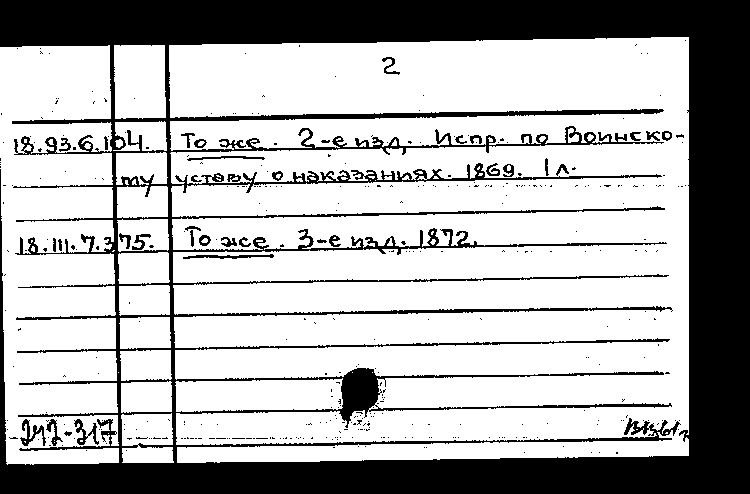 2
18.93.6.104. То же. 2-е изд. Испр. по Воинско-
му уставу о наказаниях. 1869. 1 л.
18.III.7.375. То же. 3-е изд. 1872.
242-317